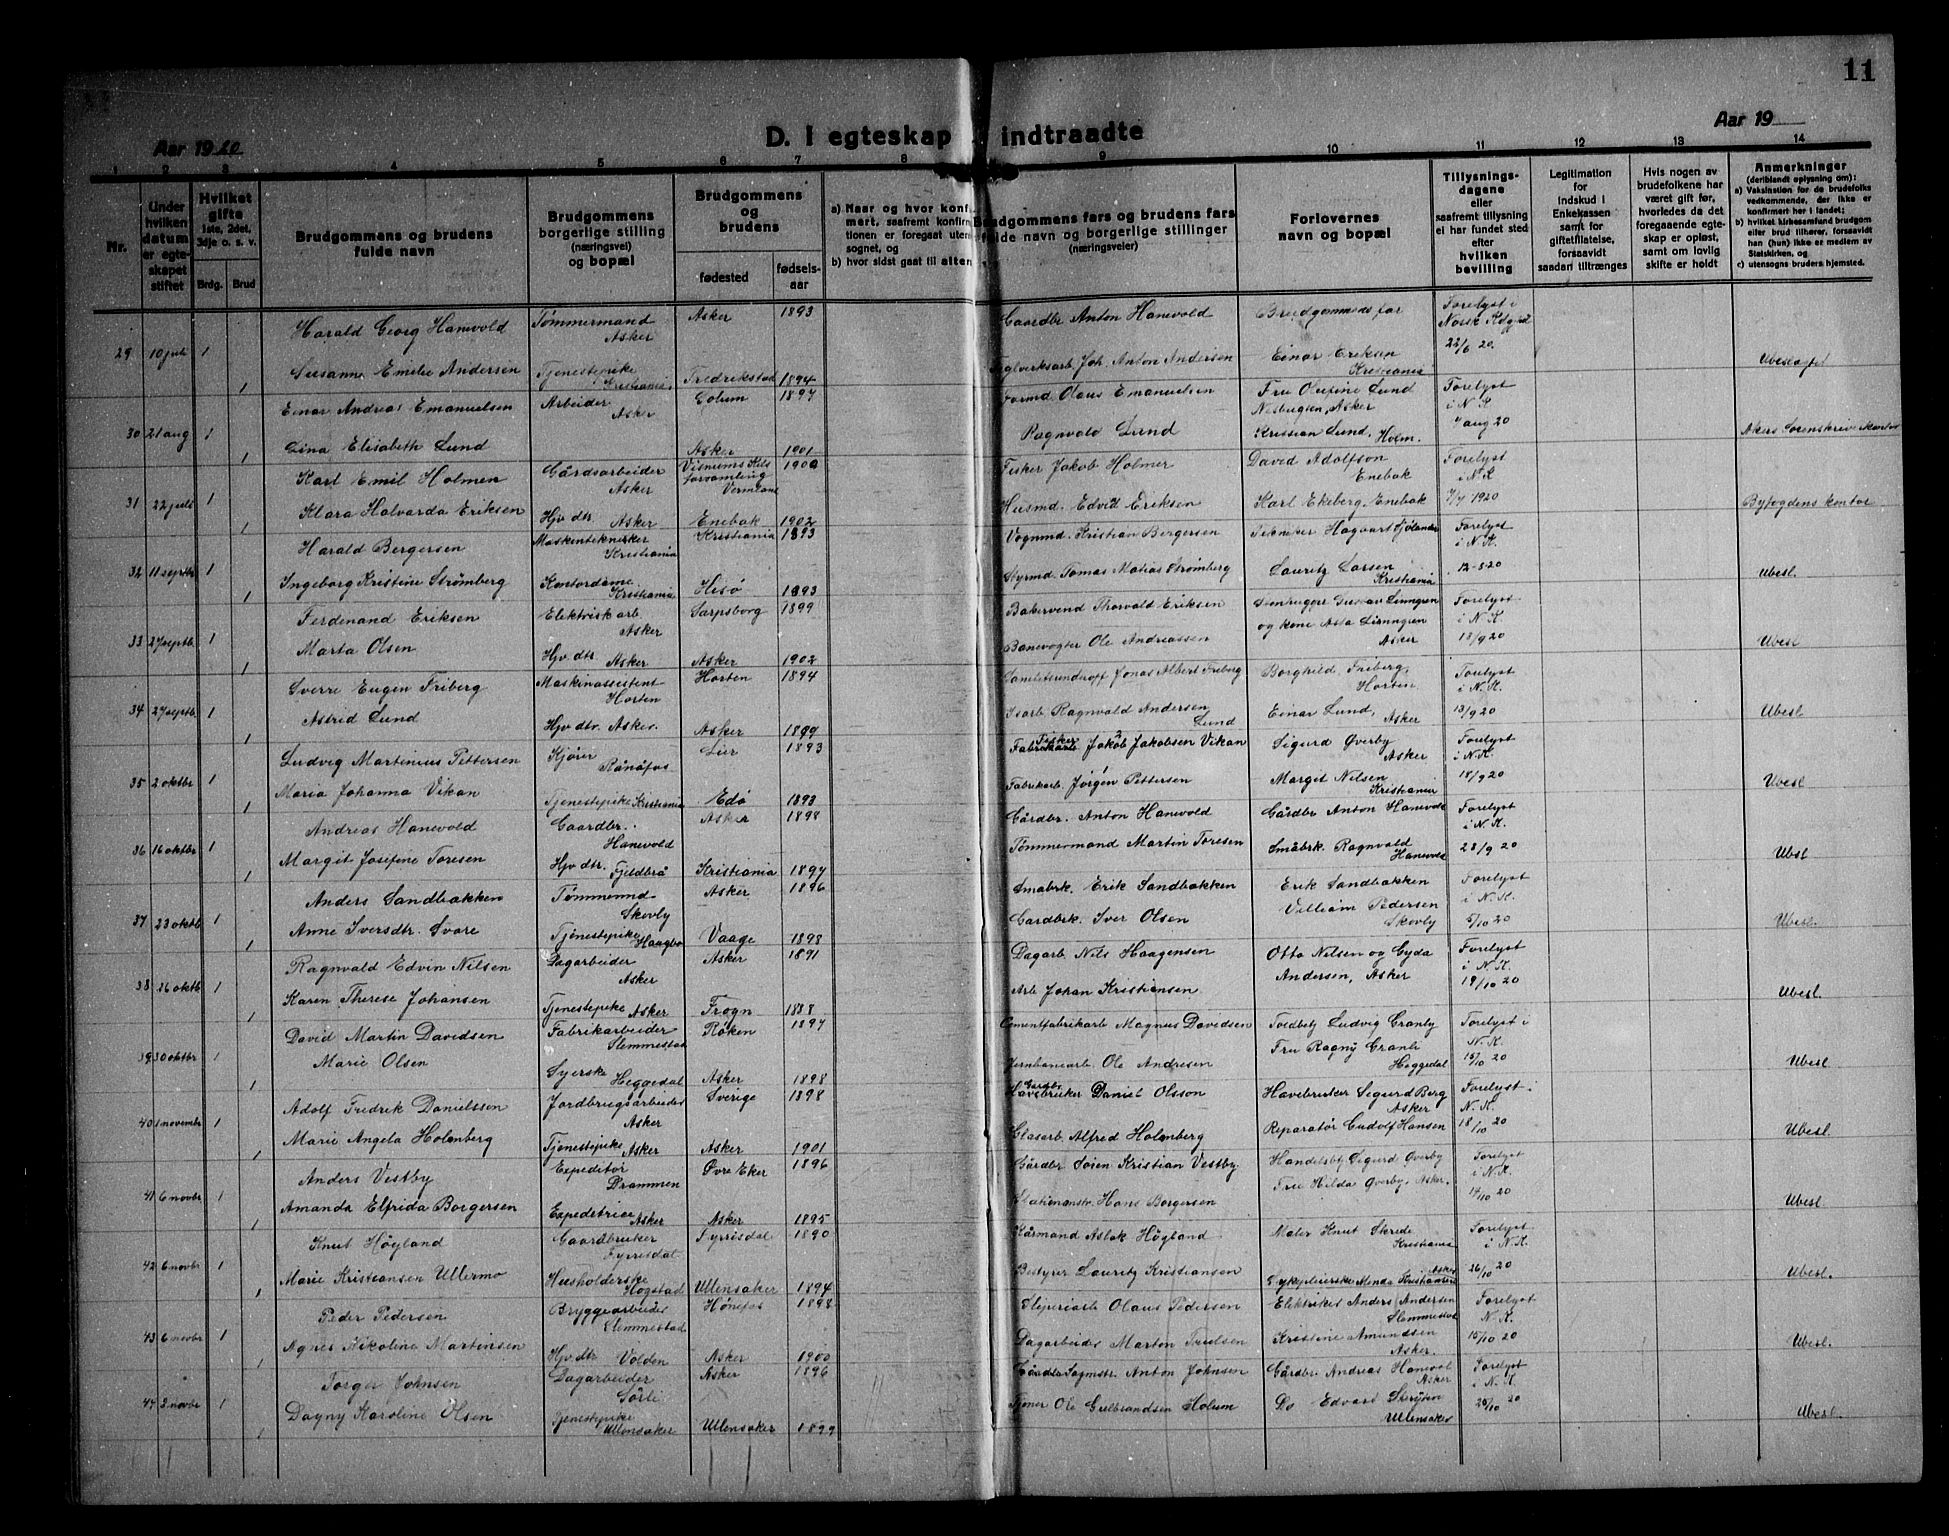 11
Aar 1920
D. I egteskap indtraadte
Aar 19
1 2 3 4 5 6 7 8 9 10 11 12 13 14
Nr.
Under hvilken datum er egteskapet stiftet
Hvilket gifte 1ste, 2det, 3dje o. s. v.
Brdg. Brud
Brudgommens og brudens fulde navn
Brudgommens borgerlige stilling (næringsvei) og bopæl
Brudgommens og brudens
fødested
fødselsaar
a) Naar og hvor konfirmert, saafremt konfirmationen er foregaat uten sognet, og
b) hvor sidst gaat til alters
Brudgommens fars og brudens fars fulde navn og borgerlige stillinger (næringsveier)
Forlovernes navn og bopæl
Tillysningsdagene eller saafremt tillysning ei har fundet sted efter hvilken bevilling
Legitimation for Indskud i Enkekassen samt for giftetfilatelse, forsaavidt saadan tiltrænges
Hvis nogen av brudefolkene har været gift før, hvorledes da det foregaaende egteskap er opløst, samt om lovlig skifte er holdt
Anmerkninger (deriblandt oplysning om):
a) Vaksination for de brudefolks vedkommende, der ikke er konfirmert her i landet;
b) hvilket kirkesamfund brudgom eller brud tilhører, forsaavidt han (hun) ikke er medlem av Statskirken, og
c) utensogns bruders hjemsted.
29 10 juli 1 Harald Georg Hanevold Tømmermand Asker Asker 1893 Gaardbr Anton Hanevold Brudgommens far Forelyst i Norsk Kdgjød 22/6 20.
1 Susanne Emilie Andersen Tjenestepike Kristiania Fredrikstad 1894 Teglverksarb. Joh. Anton Andersen Einar Eriksen Kristiania Ubeslagtet
30 21 aug 1 Einar Andreas Emanuelsen Arbeider Asker 1897 Formd Olaus Emanuelsen Fru Olufine Lund Nesbugten, Asker Forelyst i N. K aug 20
1 Lina Elisabeth Lund Asker 1901 Ragnvald Lund Kristian Lund, Holm. Akers Sorenskriv. kontor
31 22 juli 1 Karl Emil Holmen Gårdsarbeider Asker Visnums Kils forsamling Vermland 1900 Fisker Jakob Holmer David Adolfson Enebak Forelyst i N. K 1920
1 Klara Halvarda Eriksen Hjv. dtr Asker Enebak 1902 Husmd Edvid Eriksen Karl Ekeberg, Enebak Byfogdens kontor
32 11 septbr 1 Harald Bergersen Maskintekniker Kristiania Kristiania 1893 Vognmd. Kristian Bergersen Forelyst i N. K. 12-8 20
1 Ingeborg Kristine Strømberg Kontordame Kristiania Hisø 1893 Styrmd. Tomas Matias Strømberg Lauritz Larsen Kristiania Ubesl.
33 27 septb. 1 Ferdenand Eriksen Elektrisk arb. Asker Sarpsborg 1899 Bakersvend Thorvald Eriksen Stenhugger Gustav Linngren og kone Asta Linngren Asker Forelyst i N. K 13/9 20
1 Marta Olsen Hjv. dtr Asker Asker 1902 Banevogter Ole Andreassen Ubesl
34 27 septb. 1 Sverre Eugen Friberg Maskinassistent Horten Horten 1894 Jonas Albert Friberg Borghild Friberg, Horten Forelyst i N. K. 13/9 20
1 Astrid Lund Hjv. dtr. Asker Asker 1899 Isarb. Ragnvald Andersen Lund Einar Lund, Asker Ubesl.
35 2 oktbr 1 Ludvig Martinius Pettersen Kjører Rånåfos Lier 1893 Fabrikarb Fisker Jakob Jakobsen Vikan Sigurd Øverby Asker Forelyst i N. K. 18/9 20
1 Maria Johanna Vikan Tjenestepike Kristiania Edø 1893 Fabrikarb. Jørgen Pettersen Margit Nilsen Kristiania Ubesl
36 16 oktbr 1 Andreas Hanevold Gaardbr. Hanevold Asker 1898 Gårdbr. Anton Hanevold Gårdbr Anton Hanevold Forelyst i N. K. 28/9 20
1 Margit Josefine Toresen Hjv. dtr. Fjeldbrå Kristiania 1897 Tømmermand Martin Toresen Småbrk. Ragnvald Hanevold Ubsl
37 23 oktb 1 Anders Sandbakken Tømmermd Skovly Asker 1896 Småbrk. Erik Sandbakken Erik Sandbakken Forelyst i N. K. 5/10 20
1 Anne Iversdtr. Svare Tjenestepike Haagbo Vaage 1898 Gardbrk. Iver Olsen Villiam Pedersen Skovly Ubesl.
38 26 oktb 1 Ragnvald Edvin Nilsen Dagarbeider Asker Asker 1891 Dagarb. Nils Haagensen Otto Nilsen og Gyda Andersen, Asker Forelyst i N. K. 19/10 20
1 Karen Therese Johansen Tjenestepike Asker Frogn 1888 Arb Johan Kristiansen Ubesl.
39 30 oktbr 1 David Martin Davidsen Fabrikarbeider Slemmestad Røken 1897 Cementfabrikarb Magnus Davidsen Toldbetj Ludvig Granly Fru Ragny Granli Heggedal Forelyst i N. K. 15/10 20
1 Marie Olsen Syerske Heggedal Asker 1898 Jernbanearb Ole Andresen Ubesl
40 1 novembr 1 Adolf Fredrik Danielssen Jordbrugsarbeider Asker Sverige 1898 Havebruker Gårdbr. Daniel Olsson Havebruker Sigurd Berg Asker Forelyst i N. K. 18/10 20
1 Marie Angela Holenberg Tjenestepike Asker Asker 1901 Glasarb Alfred Holenberg Reparatør Gudolf Hansen Ubesl.
41 6 novbr 1 Anders Vestby Expeditør Drammen Øvre Eker 1896 Gårdbr Søren Kristian Vestby Handelsbtj Sigurd Øverby Forelyst i N. K. 14/10 20
1 Amanda Elfrida Borgersen Expeditrice Asker Asker 1895 Stationsmstr. Hans Borgersen Fru Hilda Øverby, Asker. Ubesl.
42 6 novbr 1 Knut Høyland Gaardbruker Fyrrisdal Fyrrisdal 1890 Kårmand Aslak Høgland Maler Knut Skrede Kristiania Forelyst i N. K. 26/10 20
1 Marie Kristiansen Ullermo Husholderske Hogstad Ullensaker 1894 Bestyrer Lauritz Kristiansen Sykepleierske Menda Kristiansen Asker Ubesl.
43 6 novbr 1 Peder Pedersen Bryggearbeider Slemmestad Hønefos 1898 Sliperiarb Olaus Pedersen Elektriker Anders Andersen Slemmestad Forelyst N. K. 15/10 20
1 Agnes Nikoline Martinsen Hjv. dtr Volden Asker 1900 Dagarbeider Marton Truelsen Kristine Amundsen Asker. Ubesl.
44 2 novbr 1 Jørger Johnsen Dagarbeider Sørli Asker 1896 Anton Johnsen Gårdbr Andreas Haneval Asker Forelyst i N. K 20/10 20
1 Dagny Karoline Olsen Tjenestepike Ullensaker Ullensaker 1899 Tjener Ole Gulbrandsen Holum Do Edvard Ullensaker Ubesl.